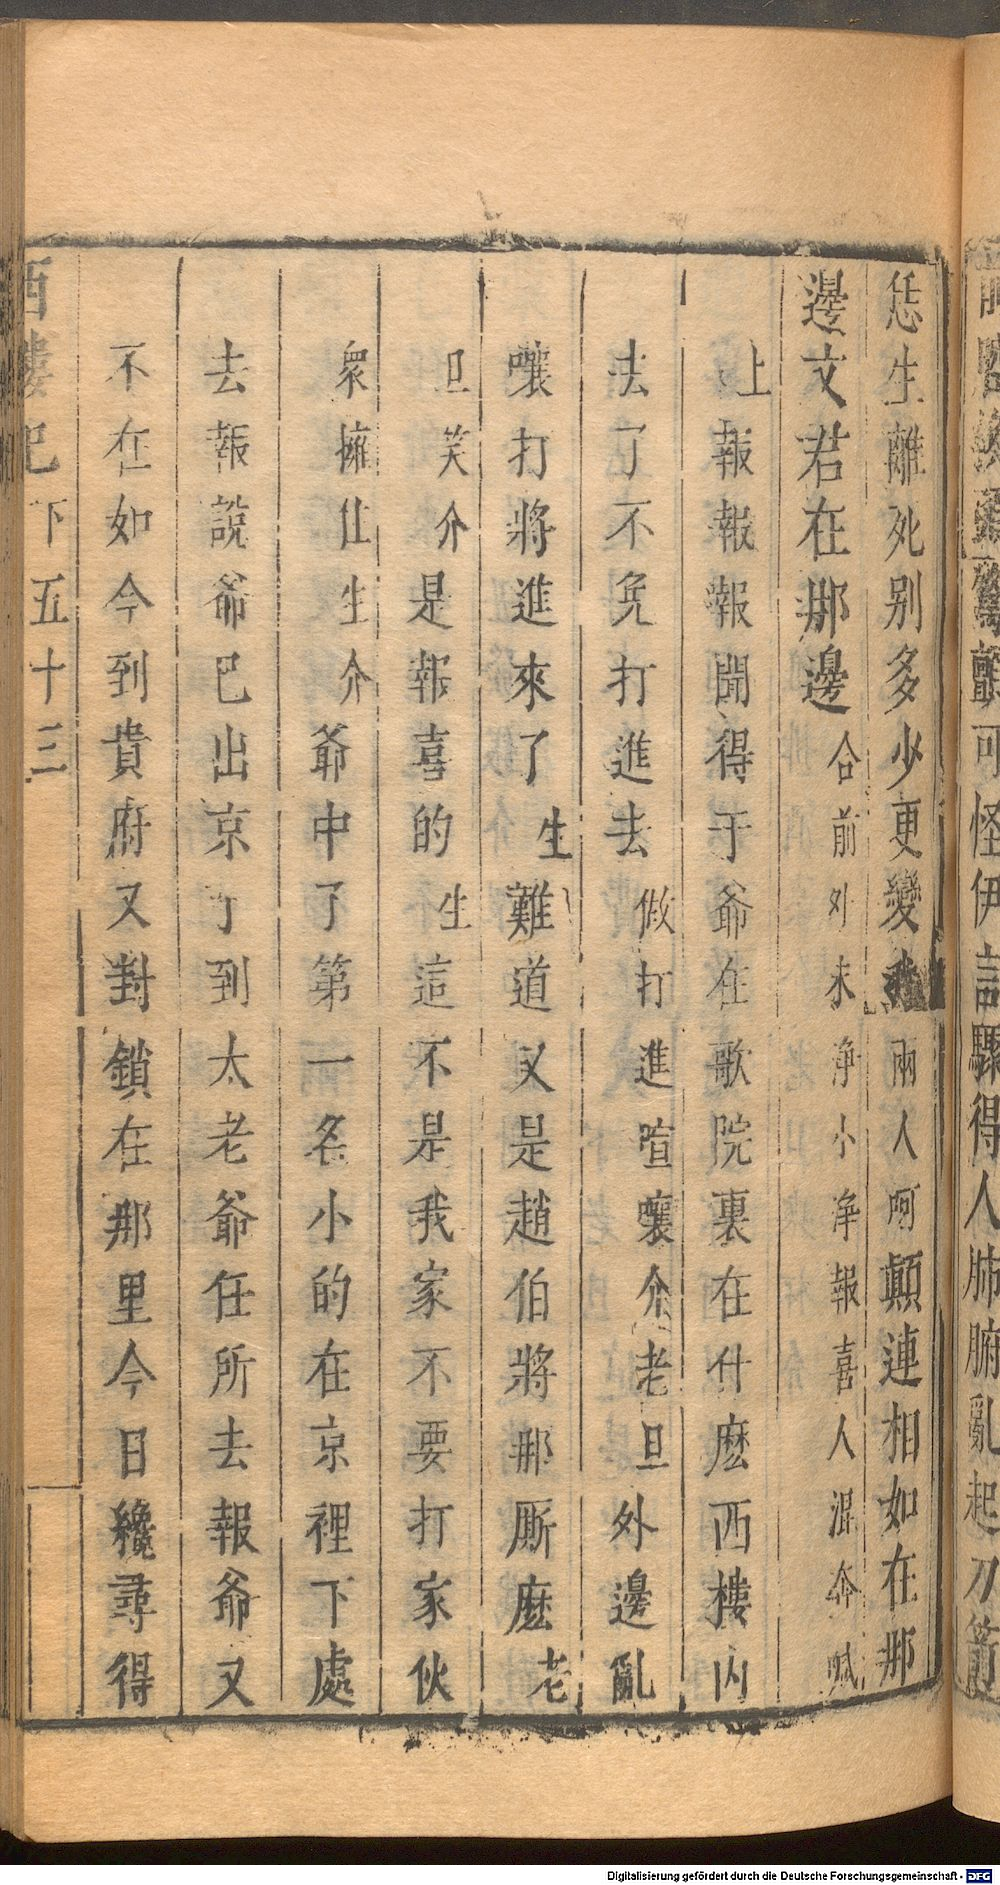 恁生離死别多少更變我兩人呵顛連相如在那
邊文君在那邊合前外末淨小淨報喜人混奔喊
上報報報聞得于爺在歌院裏在什麽西樓内
去了不免打進去做打進喧嚷介老旦外邊亂
嚷打將進來了生難道又是趙伯將那厮麽老
旦笑介是報喜的生這不是我家不要打家伙
衆擁住生介爺中了第一名小的在京裡下處
去報說爺已出京了到太老爺任所去報爺又
不在如今到貴府又對鎖在那里今日纔尋得
西樓記下五十三
可怪伊話驟得人肺腑亂起刀
Digitalisierung gefördert durch die Deutsche Forschungsgemeinschaft - DFG